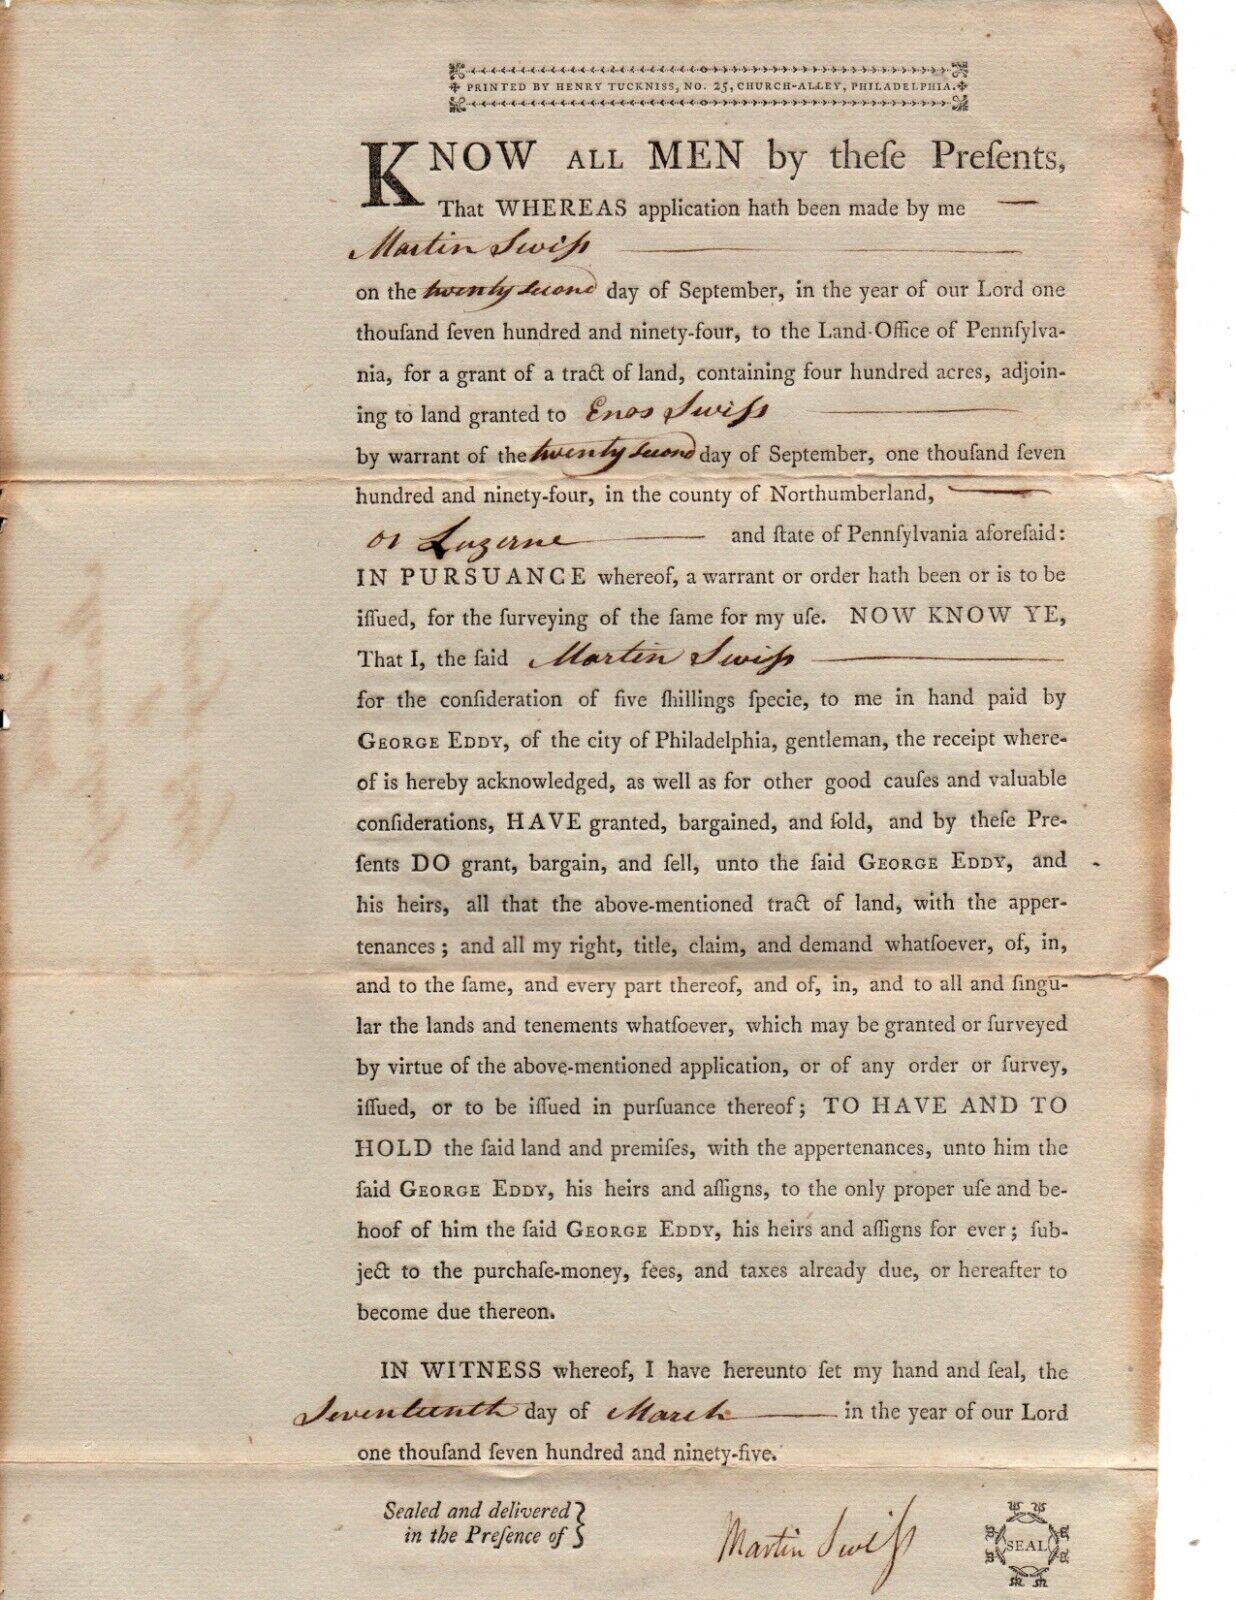 PRINTED BY HENRY TUCKNISS, NO. 25, CHURCH-ALLEY, PHILADELPHIA.
KNOW ALL MEN by theſe Preſents,
That WHEREAS application hath been made by me
Martin Swiſs
on the twenty second day of September, in the year of our Lord one
thouſand ſeven hundred and ninety-four, to the Land-Office of Pennſylva-
nia, for a grant of a tract of land, containing four hundred acres, adjoin-
ing to land granted to Enos Swiſs
by warrant of the twenty second day of September, one thouſand ſeven
hundred and ninety-four, in the county of Northumberland,
or Luzerne and ſtate of Pennſylvania aforeſaid:
IN PURSUANCE whereof, a warrant or order hath been or is to be
iſſued, for the ſurveying of the ſame for my uſe. NOW KNOW YE,
That I, the ſaid Martin Swiſs
for the conſideration of five ſhillings ſpecie, to me in hand paid by
GEORGE EDDY, of the city of Philadelphia, gentleman, the receipt where-
of is hereby acknowledged, as well as for other good cauſes and valuable
conſiderations, HAVE granted, bargained, and ſold, and by theſe Pre-
ſents DO grant, bargain, and ſell, unto the ſaid GEORGE EDDY, and
his heirs, all that the above-mentioned tract of land, with the apper-
tenances; and all my right, title, claim, and demand whatſoever, of, in,
and to the ſame, and every part thereof, and of, in, and to all and ſingu-
lar the lands and tenements whatſoever, which may be granted or ſurveyed
by virtue of the above-mentioned application, or of any order or ſurvey,
iſſued, or to be iſſued in purſuance thereof; TO HAVE AND TO
HOLD the ſaid land and premiſes, with the appertenances, unto him the
ſaid GEORGE EDDY, his heirs and aſſigns, to the only proper uſe and be-
hoof of him the ſaid GEORGE EDDY, his heirs and aſſigns for ever; ſub-
ject to the purchaſe-money, fees, and taxes already due, or hereafter to
become due thereon.
IN WITNESS whereof, I have hereunto ſet my hand and ſeal, the
Seventeenth day of March in the year of our Lord
one thouſand ſeven hundred and ninety-five.
Sealed and delivered
in the Preſence of
Martin Swiſs
SEAL